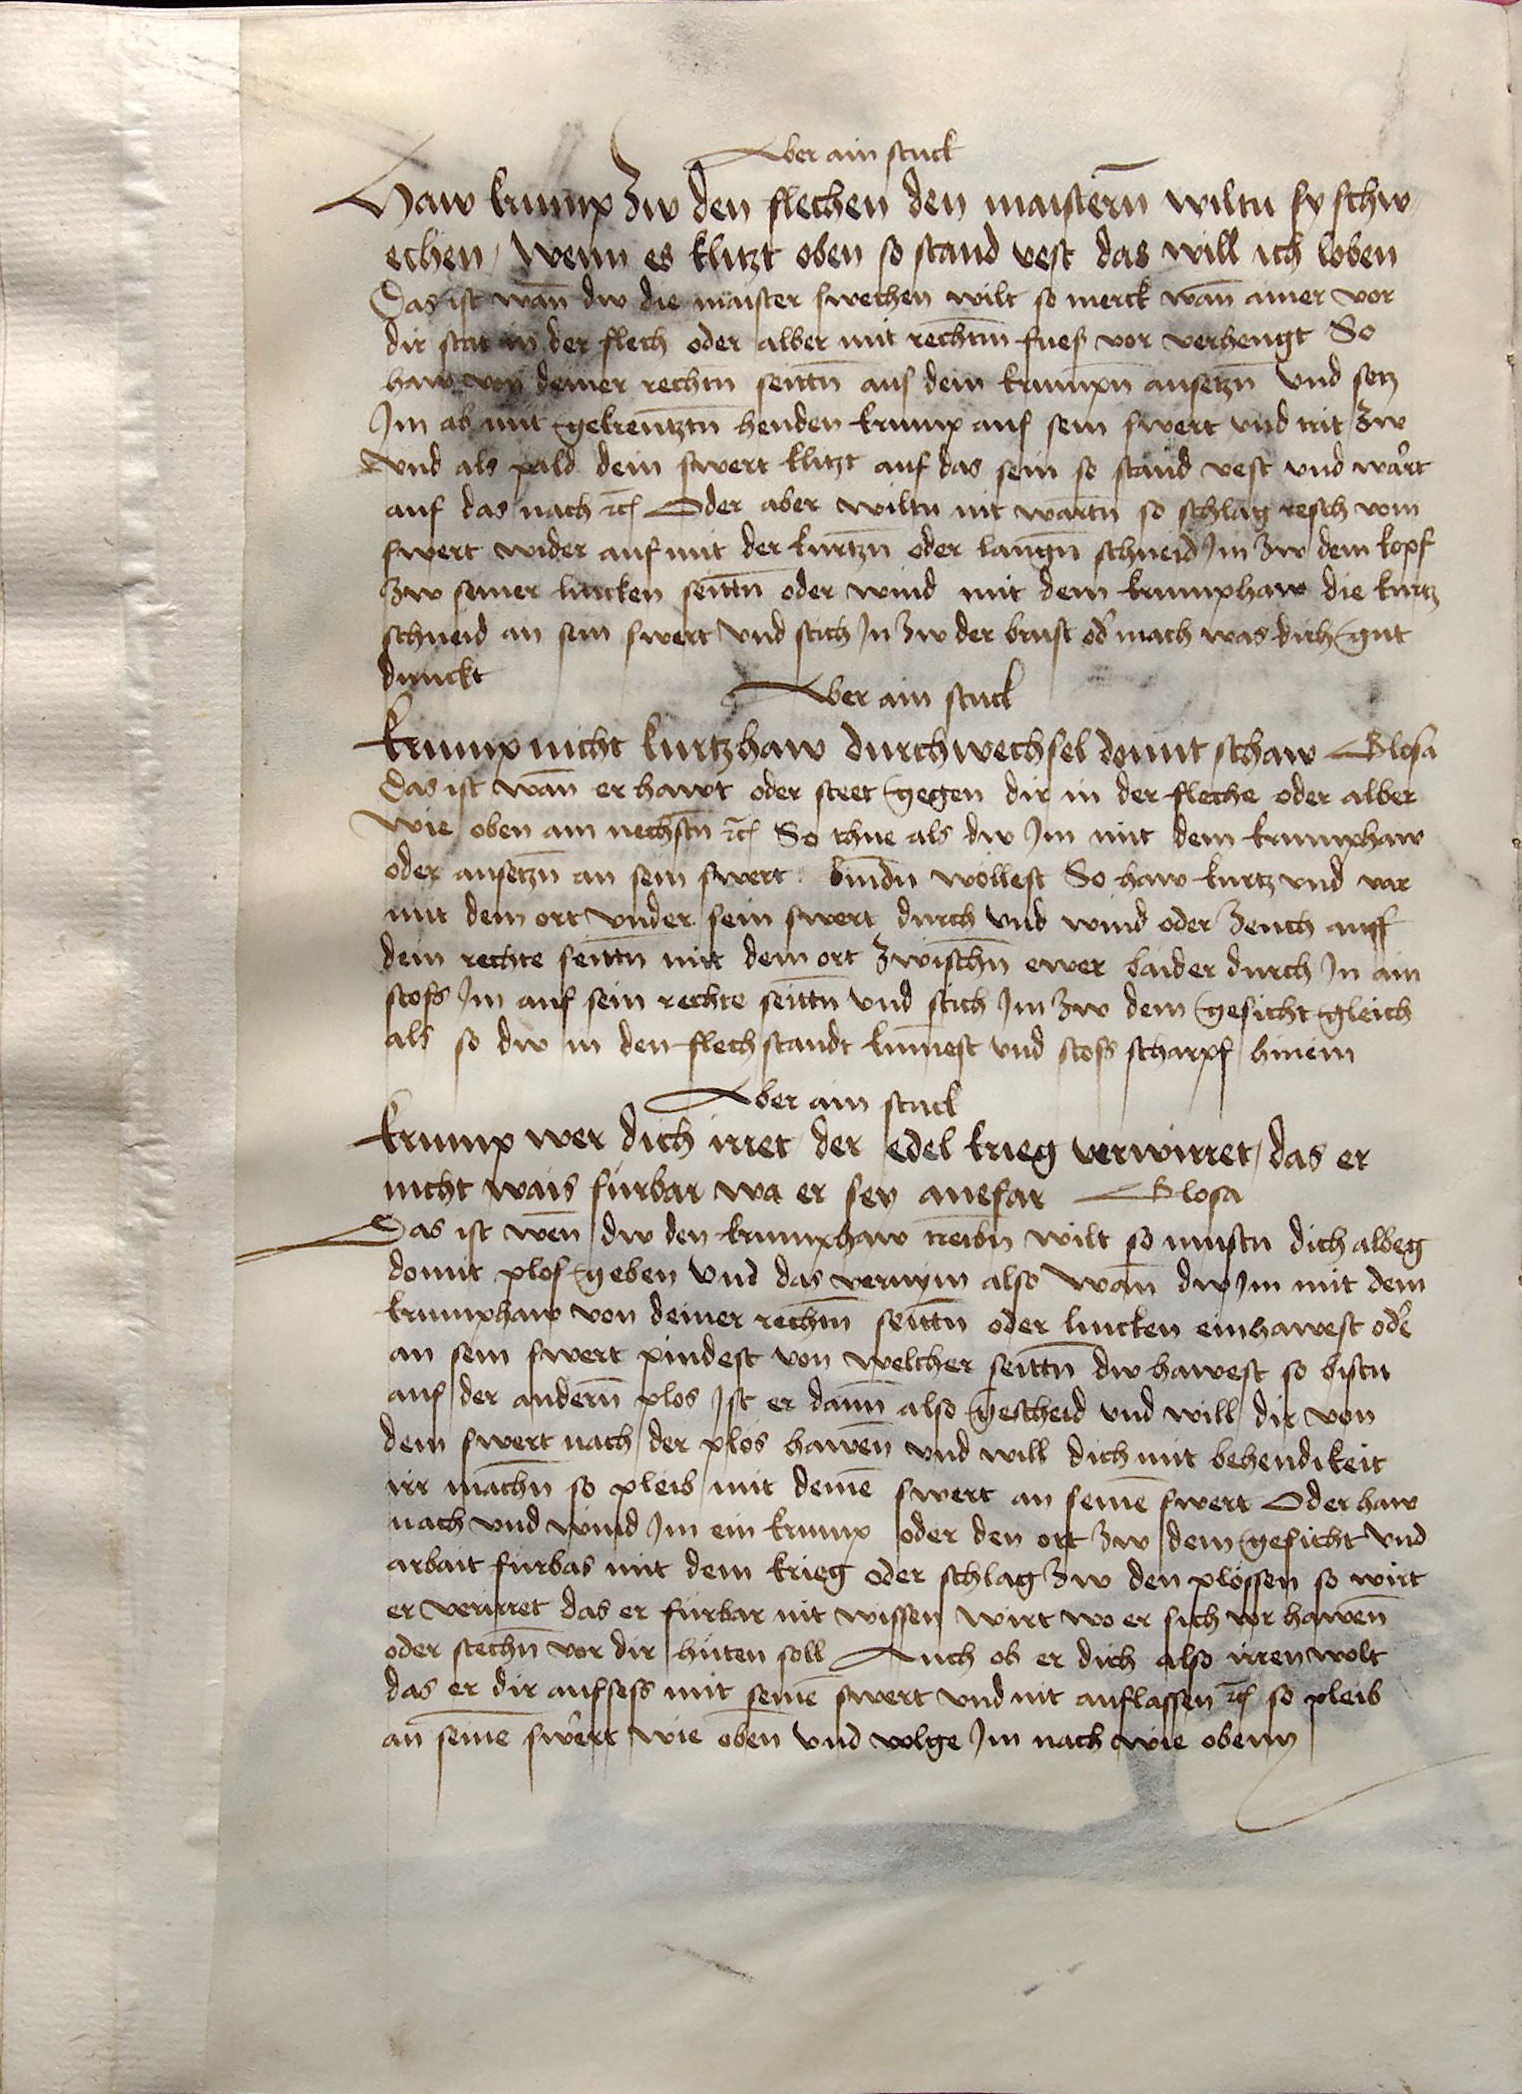 Aber ain stuck
Haw krump zw den flechen den maisternn wiltu sy schw
echen / Wenn es klitzt oben so stand vest das will ich loben
Das ist wan̄ dw die maister swechen wilt so merck wan̄ ainer vor
dir stat in der flech oder alber mit rechtm̄ fues vor verhengt So
haw von deiner rechtn̄ seittn̄ aus dem krumpn̄ ansetzn̄ Vnd setz
Jm ab mit gekreutztn̄ henden krump auf sein swert vnd trit zw
Vnd als pald dein swert klitzt auf das sein so stand vest vnd wart
auf das nach ꝛcͭ Oder aber wiltu nit wartn̄ so schlag resch vom
swert wider auf mit der kurtzn̄ oder langn̄ schneid Jm zw dem kopf
zw seiner lincken seittn̄ oder wind mit dem krumphaw die kurtz
schneid an sein swert Vnd stich Jn zw der brust od̄ mach was dich gut
dunckt
Aber ain stuck
Krump nicht kurtzhaw durchwechsel domit schaw Glosa
Das ist wan̄ er hawt oder steet gegen dir in der fleche oder alber
Wie oben am nechstn̄ ꝛcͭ So thue als dw Jm mit dem krumphaw
oder ansetzn̄ an sein swert bindn̄ wöllest So haw kurtz vnd var
mit dem ort vnder sein swert durch Vnd wind oder zeuch auff
dein rechte seittn̄ mit dem ort zwischn̄ ewer baider durch Jn ain
stoss Jm auf sein rechte seittn̄ Vnd stich Jm zw dem gesicht gleich
als so dw in den flech standt kum̄est vnd stoss scharpf hinein
Aber ain stuck
Krump wer dich irret / der edel krieg verwirret / das er
nicht wais fürbar wa er sey anefar Glosa
Das ist wen̄ dw den krumphaw treibn̄ wilt so mustu dich albeg
domit plos geben Vnd das vernym also wan̄ dw Jm mit dem
krumphaw von deiner rechtn̄ seittn̄ oder lincken einhawest od̄e
an sein swert pindest von welcher seittn̄ dw hawest so bistu
auf der andern̄ plos Jst er dann̄ also gescheid vnd will dir von
dem swert nach der plos hawen̄ vnd will dich mit behendikeit
irr machn̄ so pleib mit deine̅ swert an seine̅ swert Oder haw
nach vnd wind Jm ein krump oder den ort zw dem gesicht Vnd
arbait fürbas mit dem krieg oder schlag zw den plössen so wirt
er verirret das er fürbar nit wissen wirt wo er sich vor hawen̄
oder stechn̄ vor dir hüten soll Auch ob er dich also irren wolt
das er dir aufsess mit seine̅ swert vnd nit auflassen ꝛcͭ so pleib
an seine̅ swert wie oben Vnd volge Jm nach wie obenn